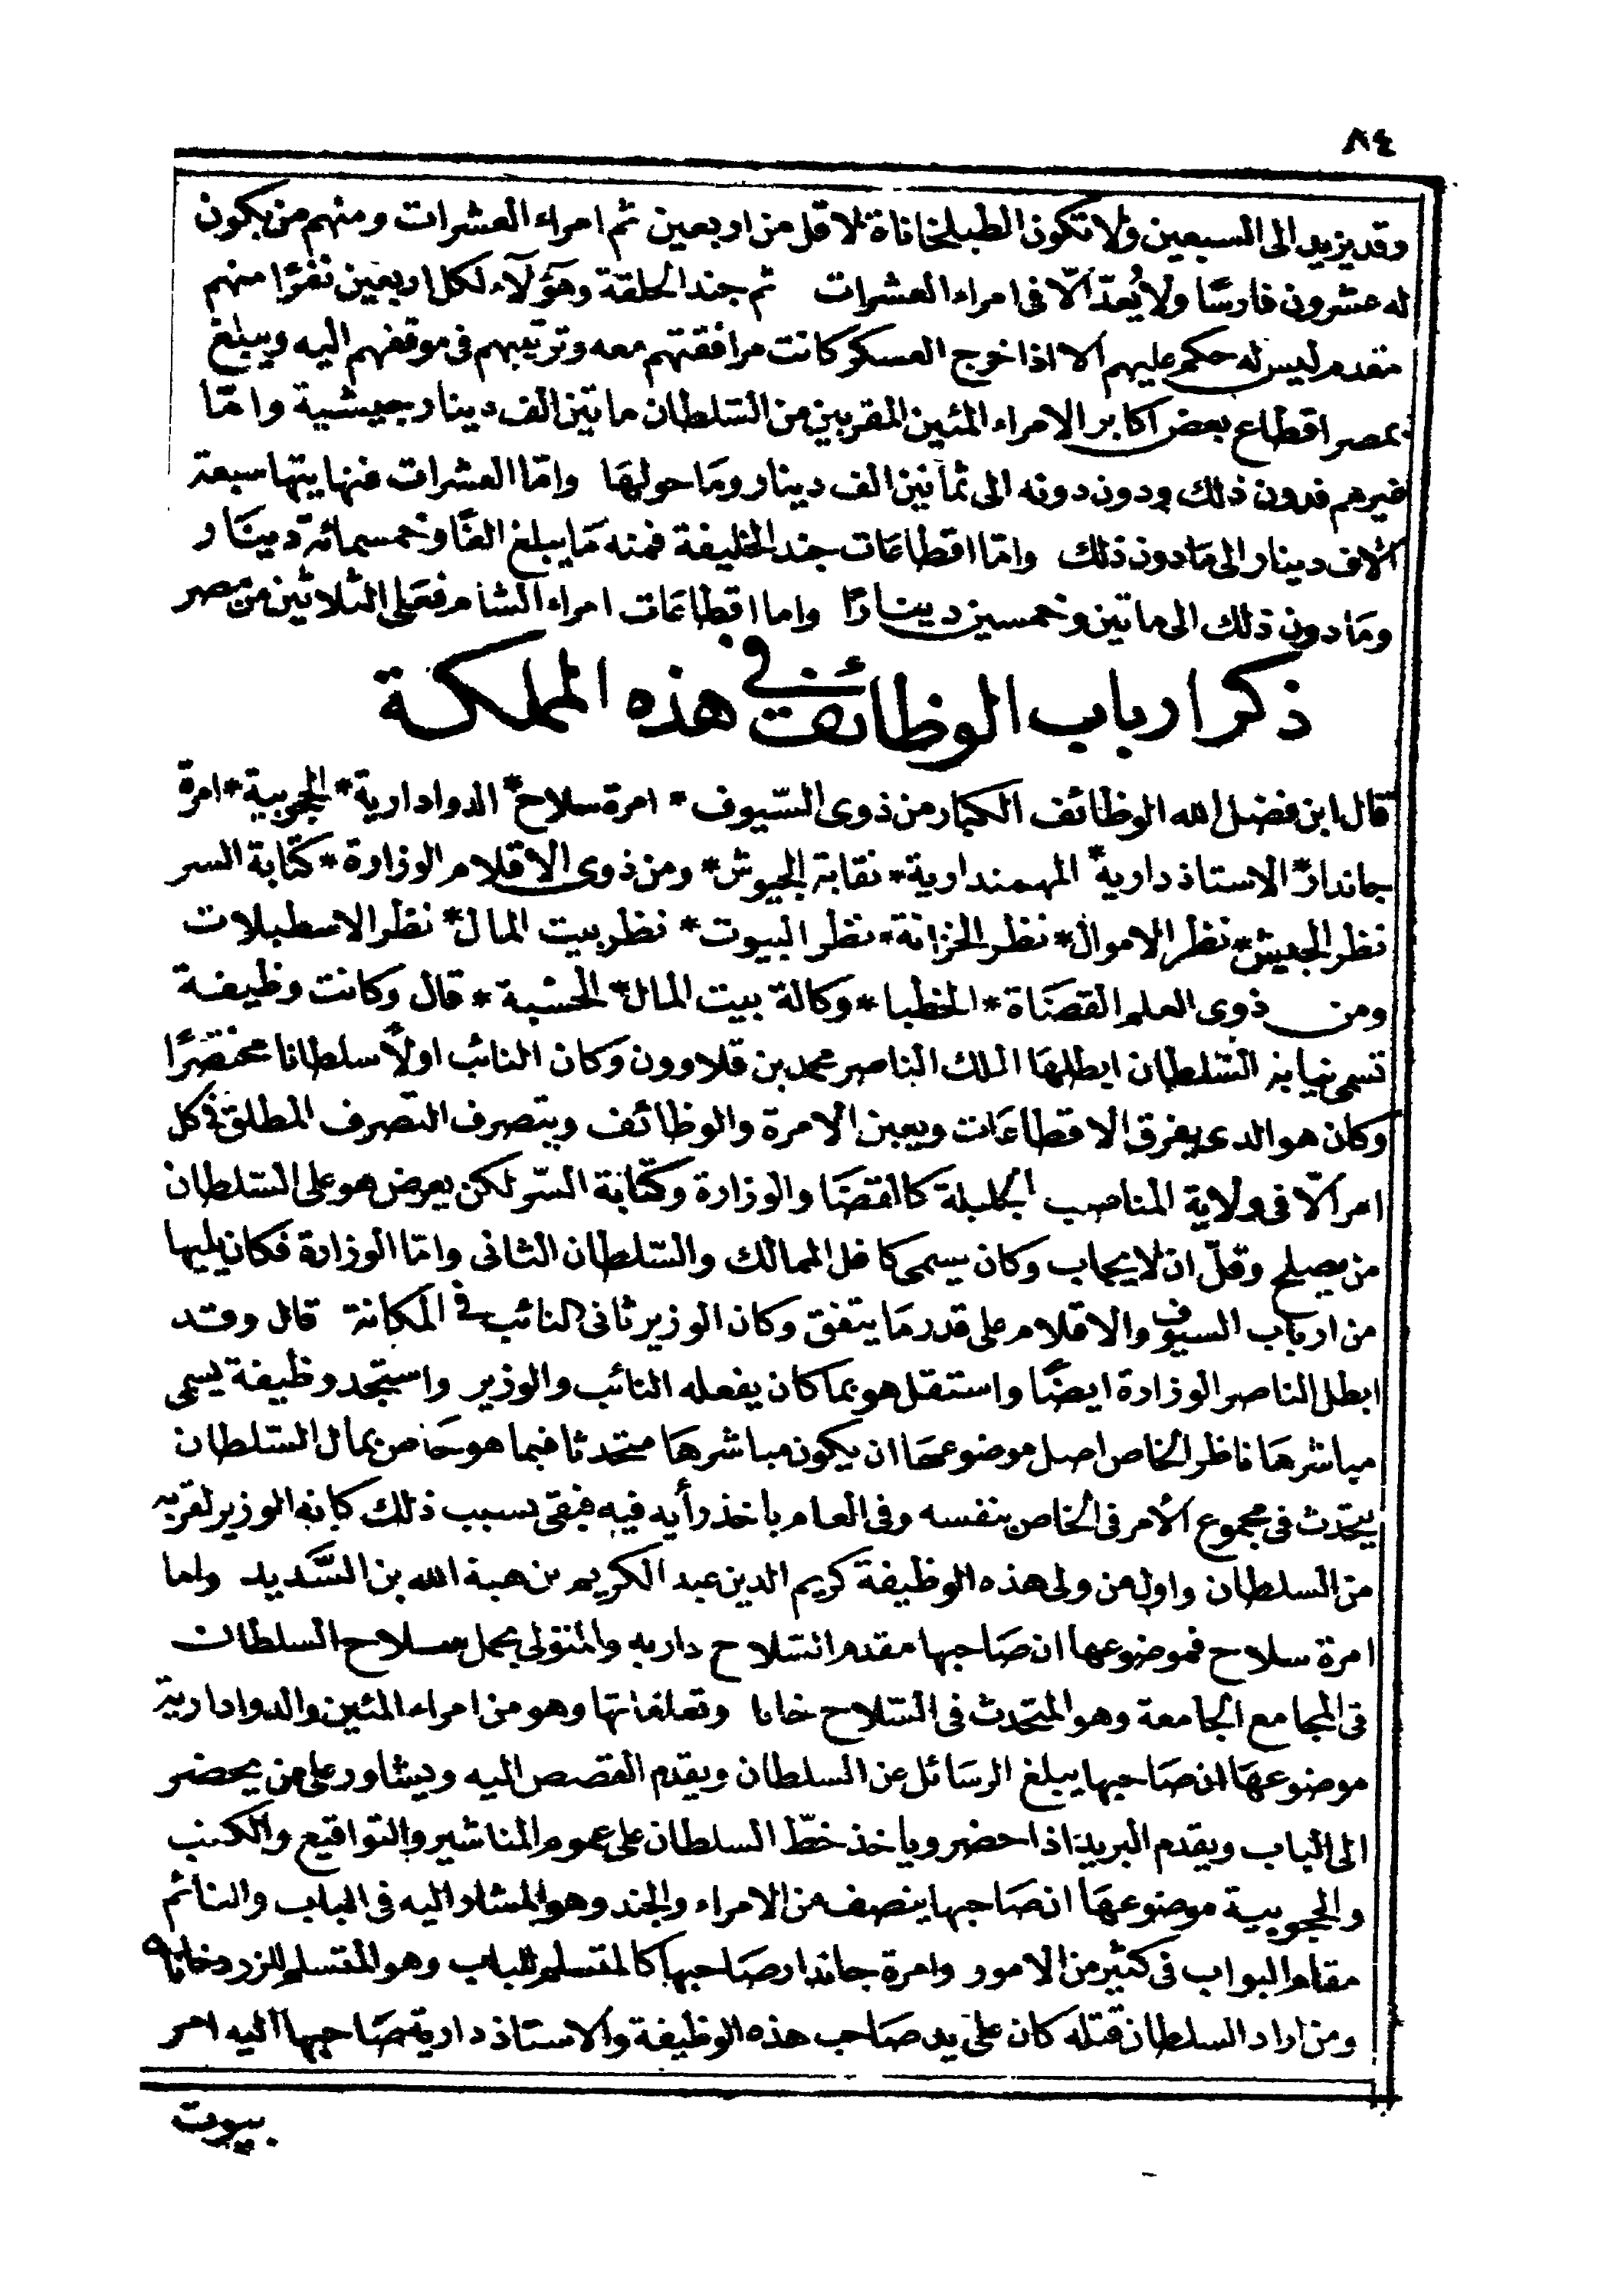 ٨٤
وقد يزيد الى السبعين ولا تكون الطبلخاناة لا قل من اربعين ثم امراء العشرات ومنهم من يكون
له عشرون فارسًا ولا يُعدّ الّا فى امراء العشرات ثم جند الحلقة وهؤلآء لكل اربعين نفرًا منهم
مقدم ليس له حكم عليهم الا اذا خرج العسكر كانت مرافقتهم معه وترتيبهم فى موقفهم اليه ويبلغ
بمصر اقطاع بعض اكابر الامراء المئين المقربين من السّلطان ماتين الف دينار جيشية وامّا
غيرهم فدون ذلك ودون دونه الى ثمانين الف دينار وما حوليها وامّا العشرات فنهايتها سبعة
الاف دينار الى مادون ذلك وامّا اقطاعات جند الخليفة فمنه مَا يبلغ الفًا وخمسمائة دينار و
ومَا دون ذلك الى ماتين وخمسين دينارًا واما اقطاعَات امراء الشام فعَلى الثلاثين من مصر
ذكر ارباب الوظائف فى هذه المملكة
قال ابن فضل الله الوظائف الكبار من ذوى السّيوف * امرة سلاح * الدوادارية * الحجوبية * امرة
جاندار * الاستاذ دارية * المهمندارية * نقابة الجيوش * ومن ذوى الاقلام الوزارة * كتابة السر
نظر الجيش * نظر الاموال * نظر الخزانة * نظر البيوت * نظر بيت المال * نظر الاسطبلات
ومن ذوى العلم القضَاة * الخطبا * وكالة بيت المال * الحسبة * قال وكانت وظيفة
تسمى نيابة السّلطان ابطلهَا الملك الناصر محمد بن قلاوون وكان النائب اولًا سلطانا مختصرًا
وكان هو الدى يفرق الاقطاعَات ويعين الامرة والوظائف ويتصرف التصرف المطلق فى كل
امر الّا فى ولاية المناصب الجليلة كالقضَا والوزارة وكتابة السّر لكن يعرض هو على السّلطان
من يصلح وقلّ ان لا يجاب وكان يسمى كافل الممالك والسّلطان الثانى وامّا الوزارة فكان يليها
من ارباب السيوف والاقلام على قدر مَا يتفق وكان الوزير ثانى النائب فى المكانة قال وقد
ابطل الناصر الوزارة ايضًا واستقل هو بما كان يفعله النائب والوزير واستجد وظيفة يسمى
مباشرهَا ناظر الخاص اصل موضوعهَا ان يكون مباشرهَا متحدثا فيما هو خاص بمال السّلطان
يتحدث فى مجموع الأمر فى الخاص بنفسه وفى العام باخذ رأيه فيه فبقى بسبب ذلك كانه الوزير لقربه
من السلطان واول من ولى هذه الوظيفة كريم الدين عبد الكريم بن هبة الله بن السَّديد واما
امرة سلاح فموضوعها ان صَاحبها مقدم السّلاح داريه والمتولى بحمل سلاح السلطان
فى المجامع الجامعة وهو المتحدث فى السّلاح خانا وتعلقاتها وهو من امراء المئين والدوادارية
موضوعهَا ان صَاحبها يبلغ الرسَائل عن السلطان ويقدم القصص اليه ويشاور على من يحضر
الى الباب ويقدم البريد اذا حضر وياخذ خطّ السلطان على عموم المناشير والتواقيع والكتب
والحجوبية موضوعهَا ان صَاحبها ينصف من الامراء والجند وهو المشار اليه فى الباب والنائم
مقام البواب فى كثير من الامور وامرة جاندار صَاحبها كالمتسلم للباب وهو المتسلم للزردخاناه
ومن اراد السلطان قتله كان على يد صاحب هذه الوظيفة والاستاذ دارية صَاحبها اليه امر
بيوت